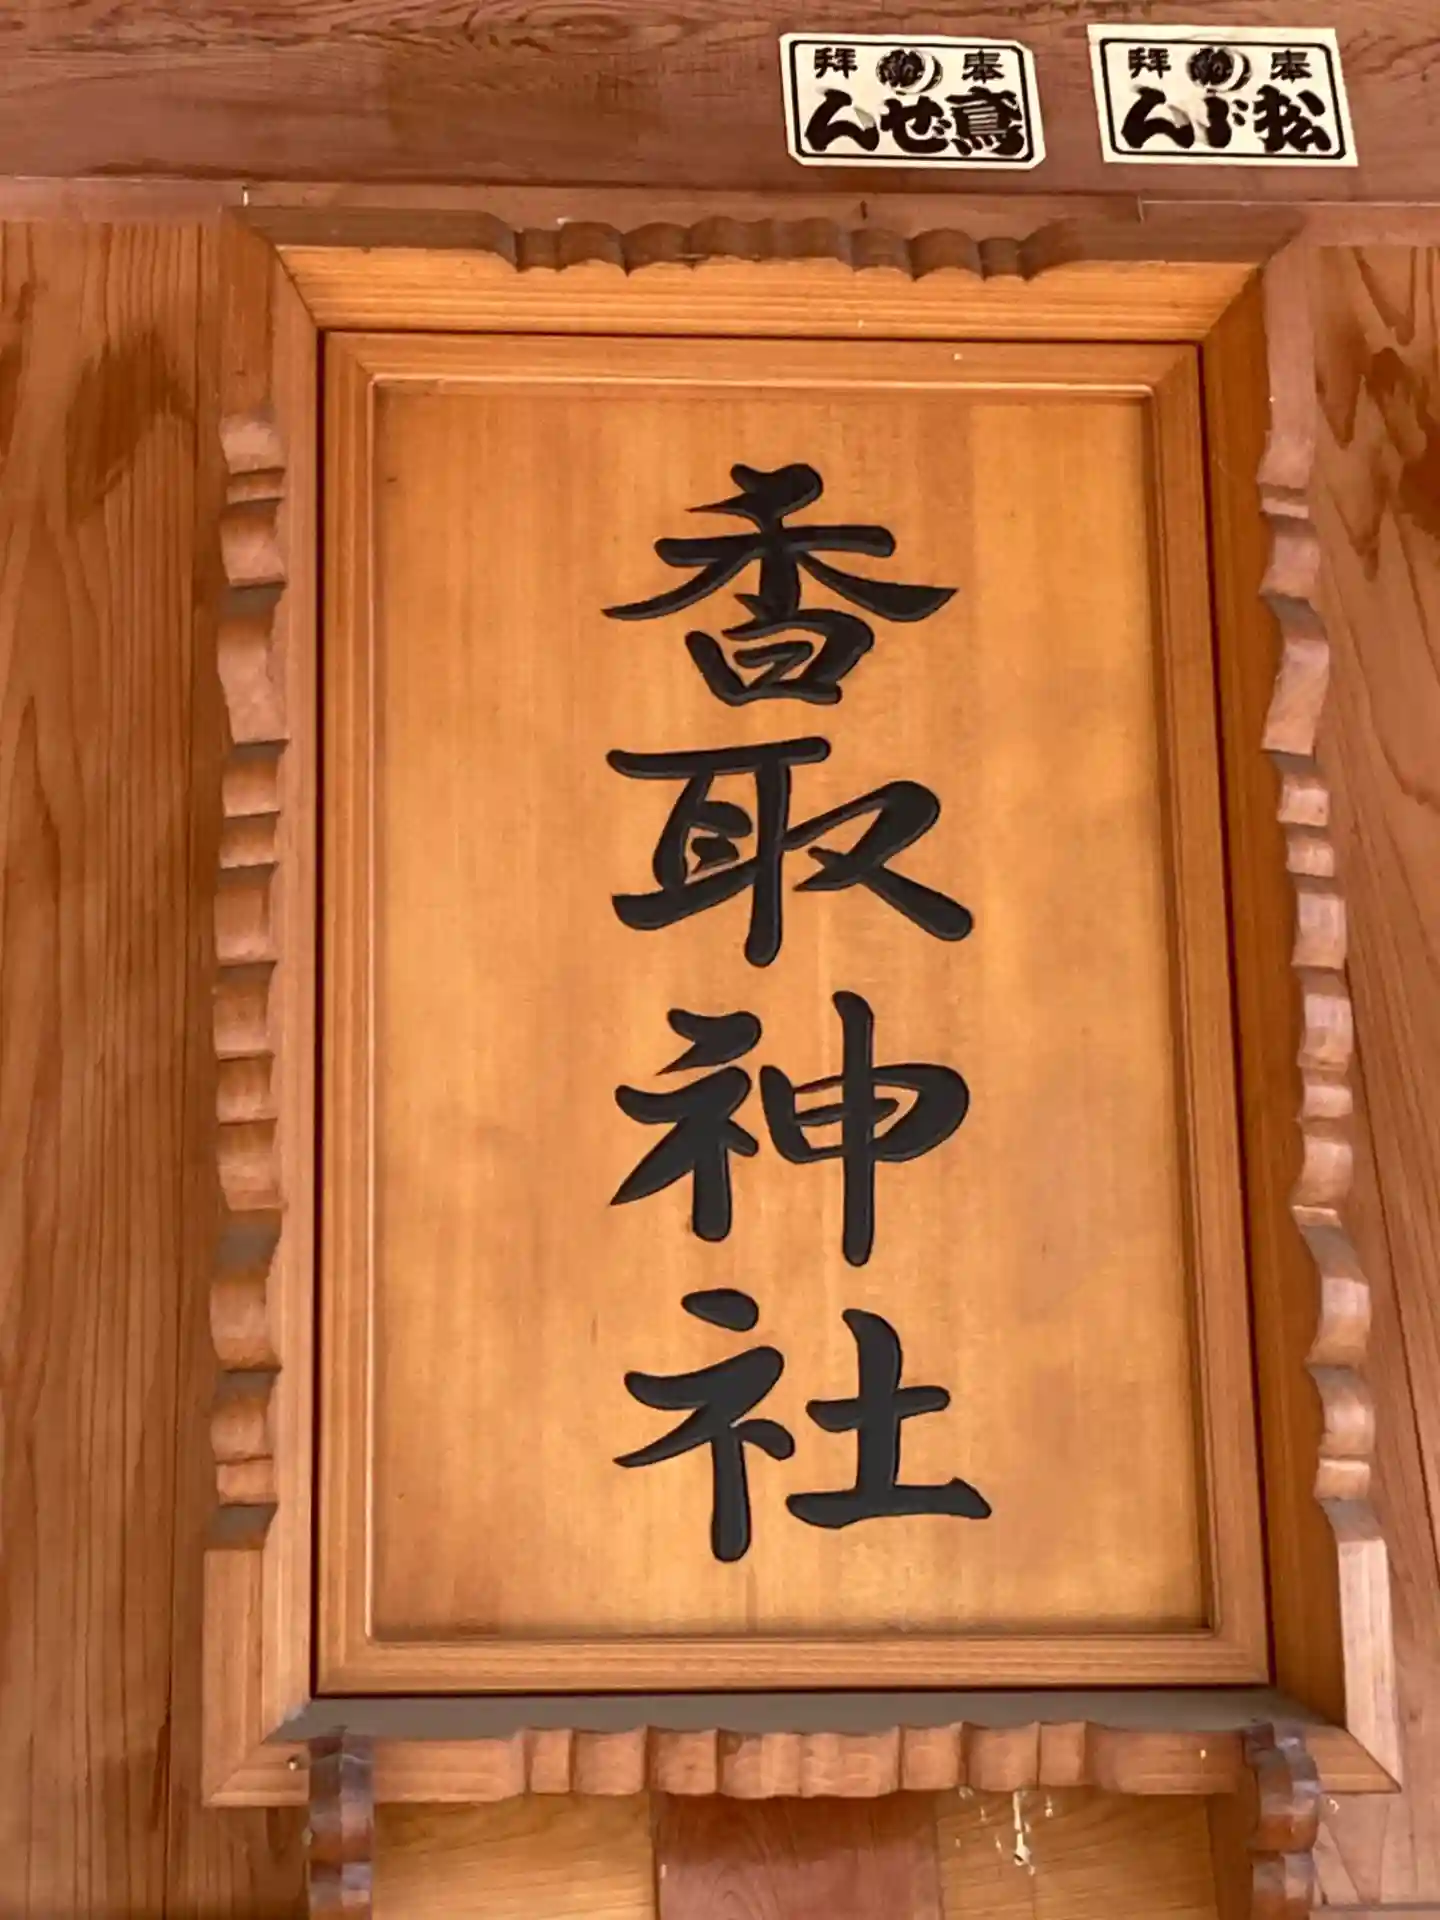 奉拝
鳶ぜん
奉拝
松づん
香取神社